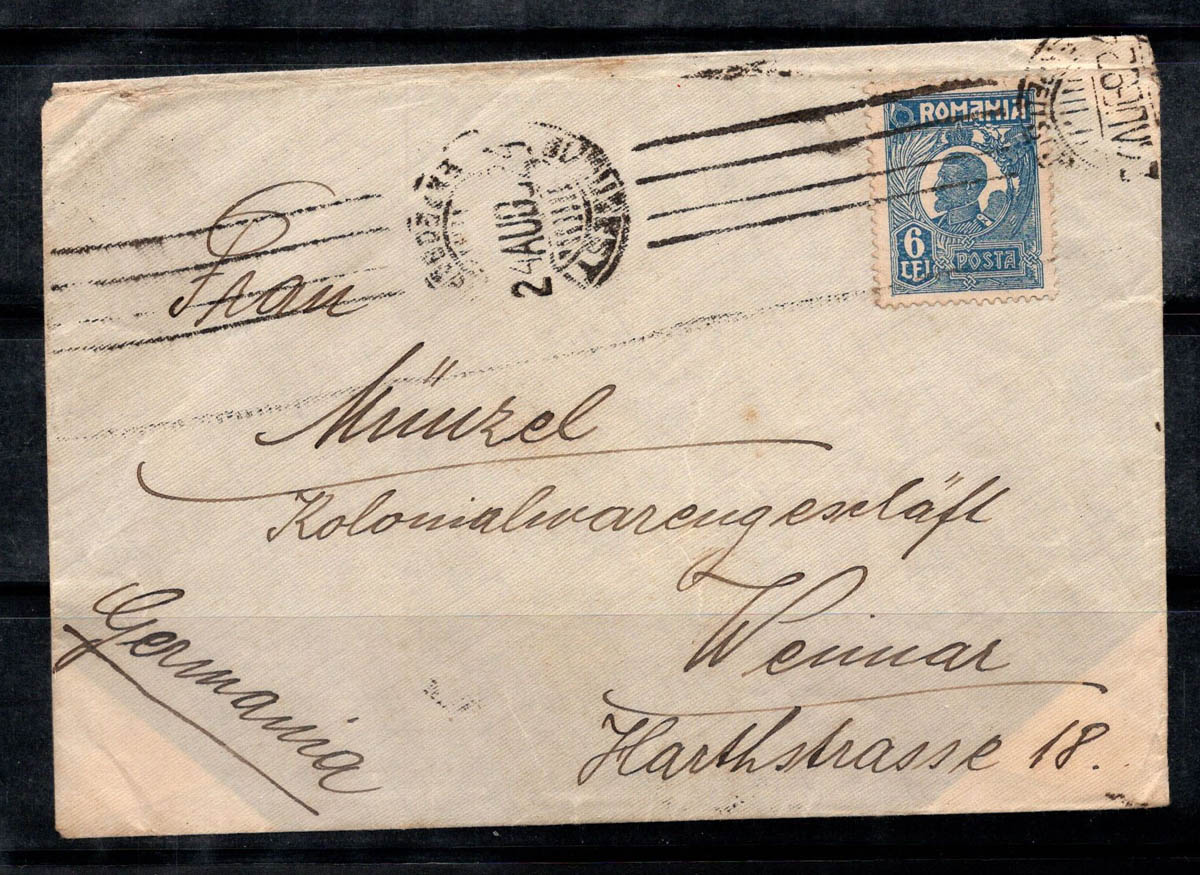 ROMANIA
6
LEI
POSTA
24 AUG
Frau
Münzel
Kolonialwarengeschäft
Weimar
Harthstrasse 18.
Germania